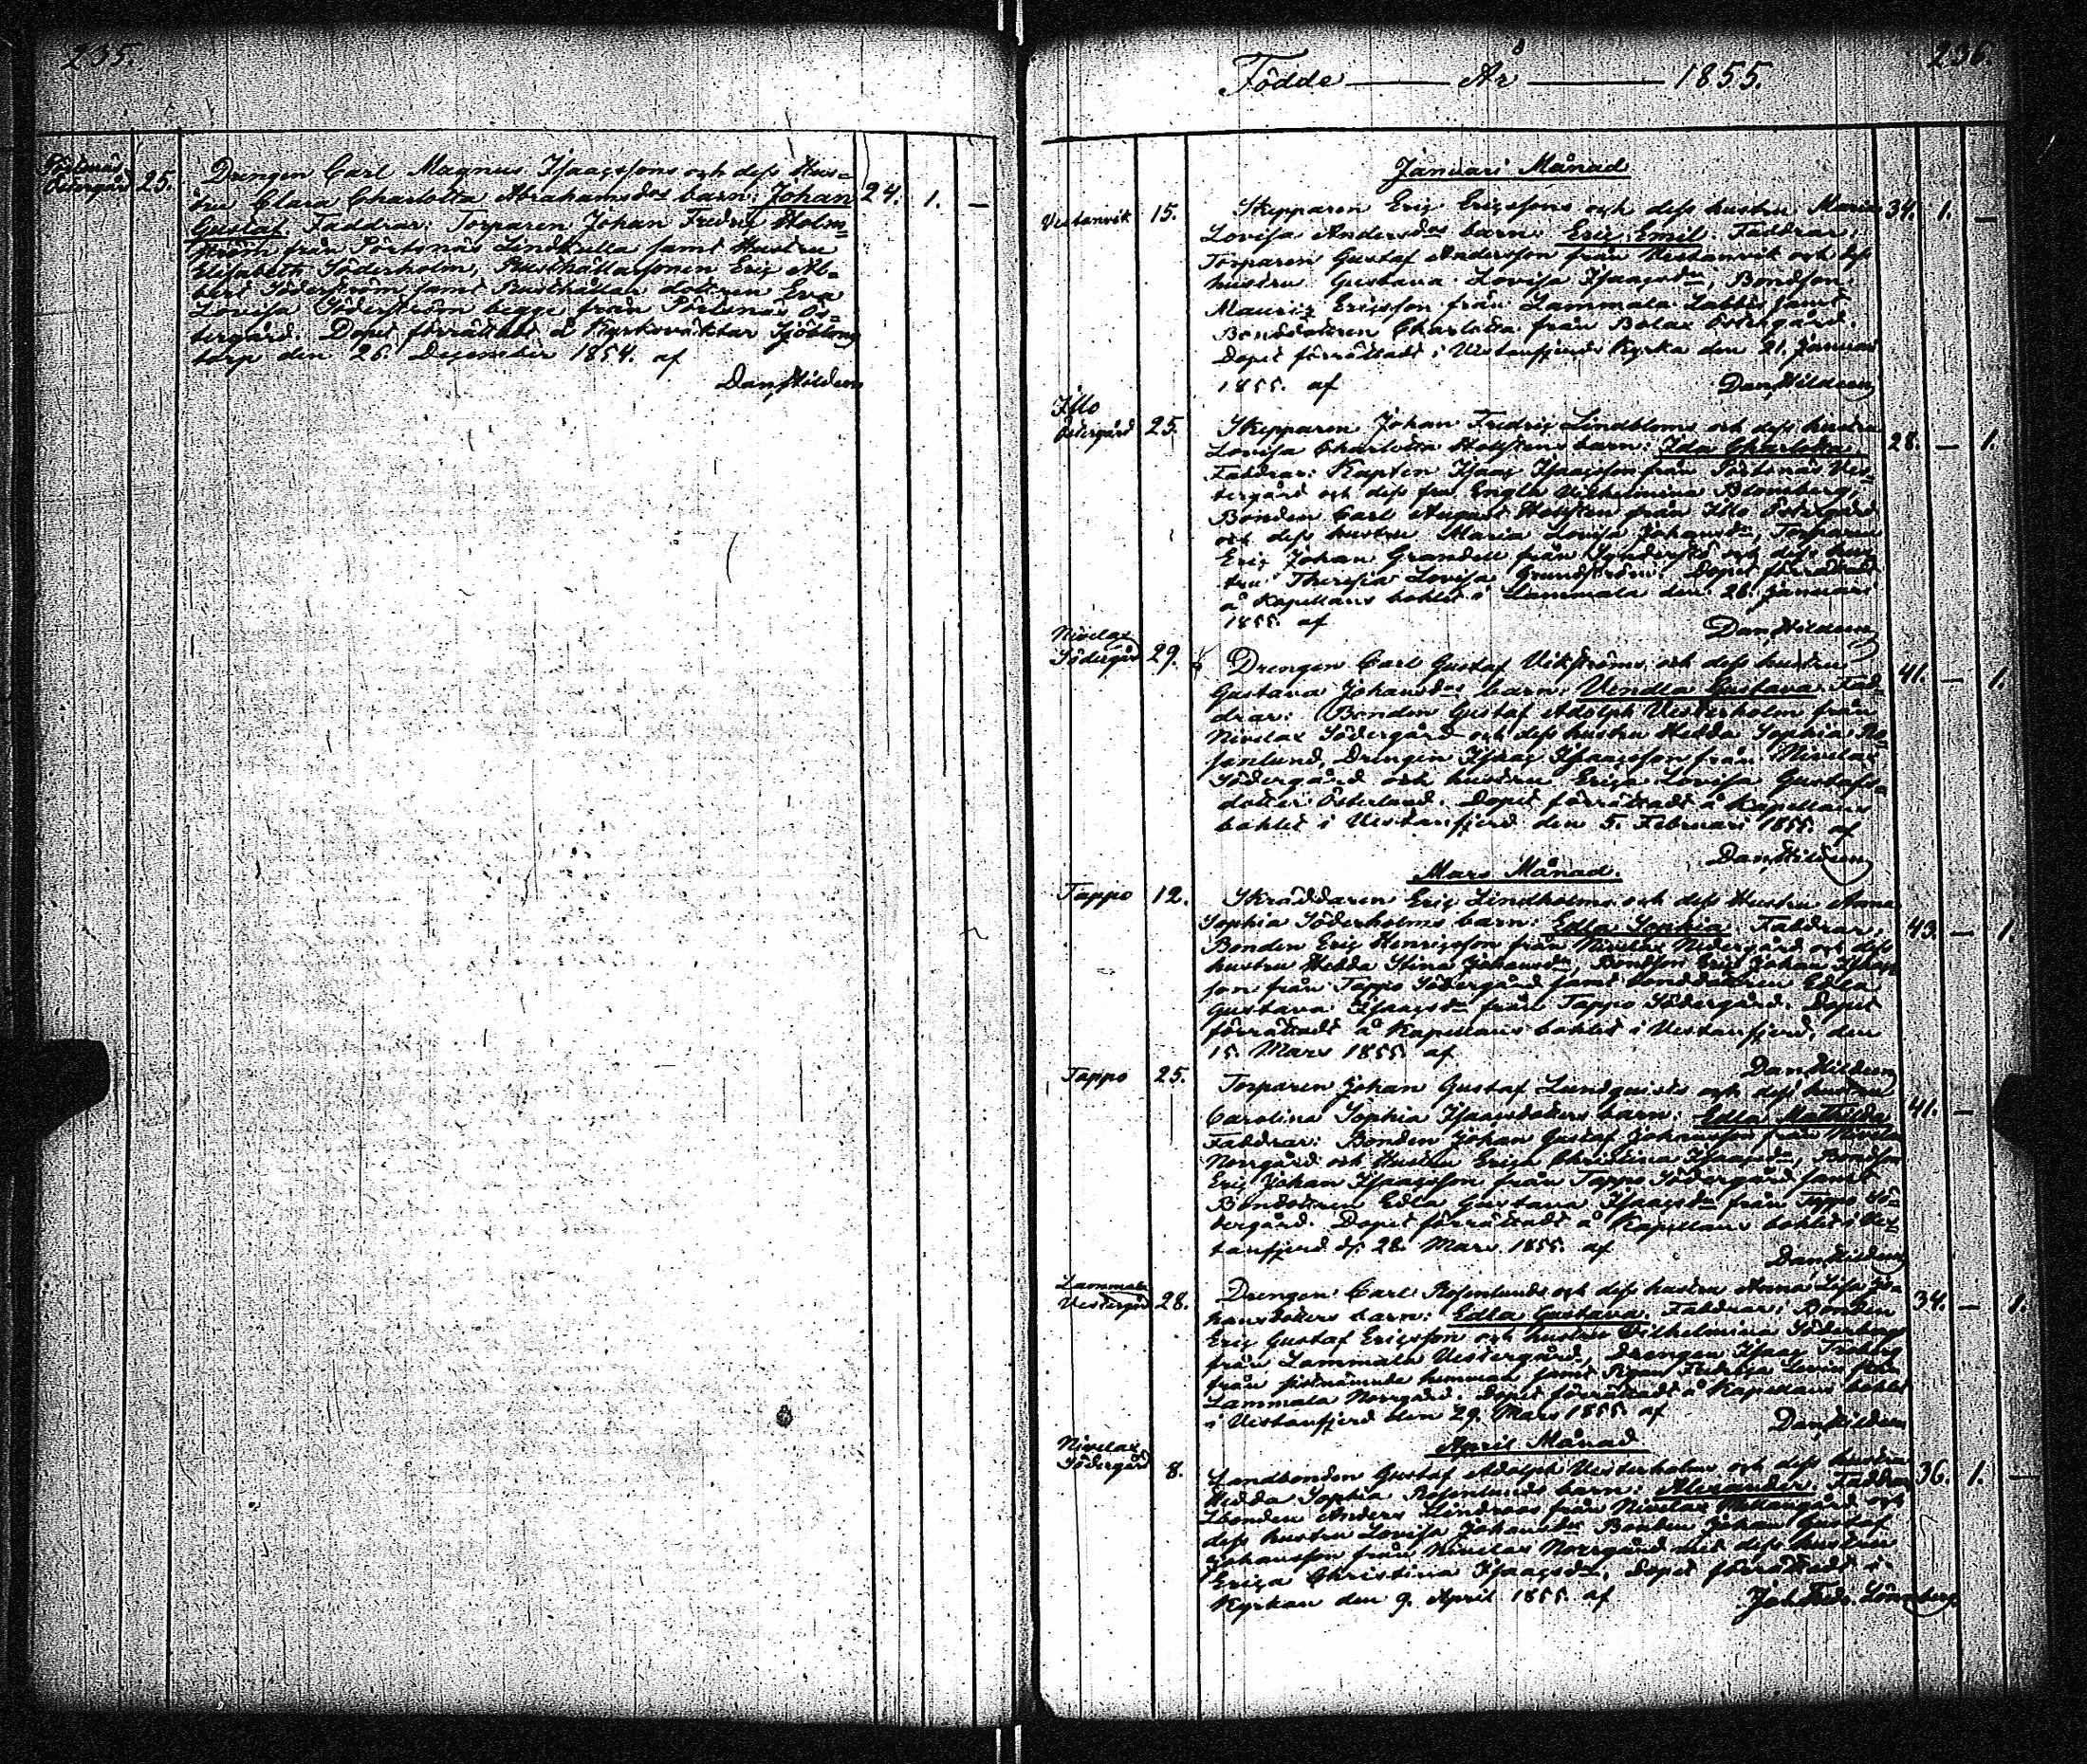 235.
Östergård 25.
Drengen Carl Magnus Isaacssons och dess Hus-
tru Clara Charlotta Abrahamsdrs barn: Johan 24. 1. —
Gustaf. Faddrar: Torparen Johan Fredric Holm-
från Pörtsnäs samt Hustru
Elisabeth Söderholm, Rusthållarsonen Eric Al-
bert Söderström samt Rusthållare dottren Eva
Lovisa Söderström begge från Pörtsnäs Ös-
tergård. Dopet förrättadt å Kyrkovaktar
torp den 26. December 1854. af
Dan. Hildeen
236.
Födde — År — 1855.
Januari Månad
Vestanvik 15. Skepparen Eric Ericssons och dess hustru Maria 34. 1. —
Lovisa Andersdrs barn: Eric Emil. Faddrar:
Torparen Gustaf Andersson från Vestanvik och dess
hustru Gustava Lovisa Isaacsdr, Bondson
Mauritz Ericsson från Lammala Labbas samt
Bonddottren Charlotta från Bolax Östergård.
Dopet förrättadt i Vestanfjerds Kyrka den 21. Januari
1855. af Dan. Hildeen
Illo
Östergård 25. Skepparen Johan Fredric Lindbloms och dess hustru
Lovisa Charlotta barn: Ida Charlotta. 28. — 1.
Faddrar: Kapten Isaac Isaacsson från Pörtsnäs Ves-
tergård och dess fru Engla Vilhelmina Blomberg,
Bonden Carl August från Illo Östergård
och dess hustru Maria Lovisa Johansdr, Torparen
Eric Johan Grandell från och dess hus-
tru Theresia Lovisa Grundström. Dopet förrättadt
å Kapellans bohlet i Lammala den 26. Januari
1855. af
Dan. Hildeen
Nivelax
Södergård 29. Drengen Carl Gustaf Vikströms och dess hustru
Gustava Johansdrs barn: Vendla Gustava. Fad- 41. — 1.
drar: Bonden Gustaf Adolph Vesterholm från
Nivelax Södergård och dess hustru Hedda Sophia Ro-
senlund, Drengen Isaac Isaacsson från Nivelax
Södergård och hustru Erica Lovisa Gustafs-
dotter Österlund. Dopet förrättadt å Kapellans
bohlet i Vestanfjerd den 5. Februari 1855. af
Dan. Hildeen
Mars Månad.
Tappo 12. Skräddaren Eric Lindholms och dess Hustru Anna
Sophia Söderholms barn: Edla Sophia. Faddrar: 43. — 1.
Bonden Eric Henricsson från Nivelax Nedergård och dess
hustru Hedda Stina Johansdr, Bondson Eric Johan Isaacs-
son från Tappo Södergård samt bonddottren Edla
Gustava Isaacsdr från Tappo Södergård. Dopet
förrättadt å Kapellans bohlet i Vestanfjerd, den
15. Mars 1855. af
Dan. Hildeen
Tappo 25. Torparen Johan Gustaf Lundqvists och dess hustru
Carolina Sophia Isaacsdotters barn: Edla Mathilda. 41. —
Faddrar: Bonden Johan Gustaf Johansson från Nivelax
Norrgård och Hustru Erica Christina Isaacsdr, Bondson
Eric Johan Isaacsson från Tappo Södergård samt
Bondottren Edla Gustava Isaacsdr från Tappo Sö-
dergård. Dopet förrättadt å Kapellans bohlet i Ves-
tanfjerd d. 28. Mars 1855. af
Dan. Hildeen
Lammala
Vestergård 28. Drengen Carl Rosenlunds och dess hustru Anna Lisa Jo-
hansdotters barn: Edla Gustava. Faddrar: Bonden 34. — 1.
Eric Gustaf Ericsson och hustru Vilhelmina Söderberg
från Lammala Vestergård, Drengen Isaac
från sistnämnde hemman samt Pigan Fredrica från
Lammala Norrgård. Dopet förrättadt å Kapellans bohlet
i Vestanfjerd den 29. Mars 1855. af
Dan. Hildeen
April Månad
Nivelax
Södergård 8. Landbonden Gustaf Adolph Vesterholms och dess hustru
Hedda Sophia Rosenlunds barn: Alexander. Faddrar: 36. 1. —
Lbonden Anders Lindroos från Nivelax Mellangård och
dess hustru Lovisa Johansdr, Bonden Johan Gustaf
Johansson från Nivelax Norrgård med dess hustru
Erica Christina Isaacsdr. Dopet förrättadt i
Kyrkan den 9. April 1855. af
Joh. Fredr. Lönnberg